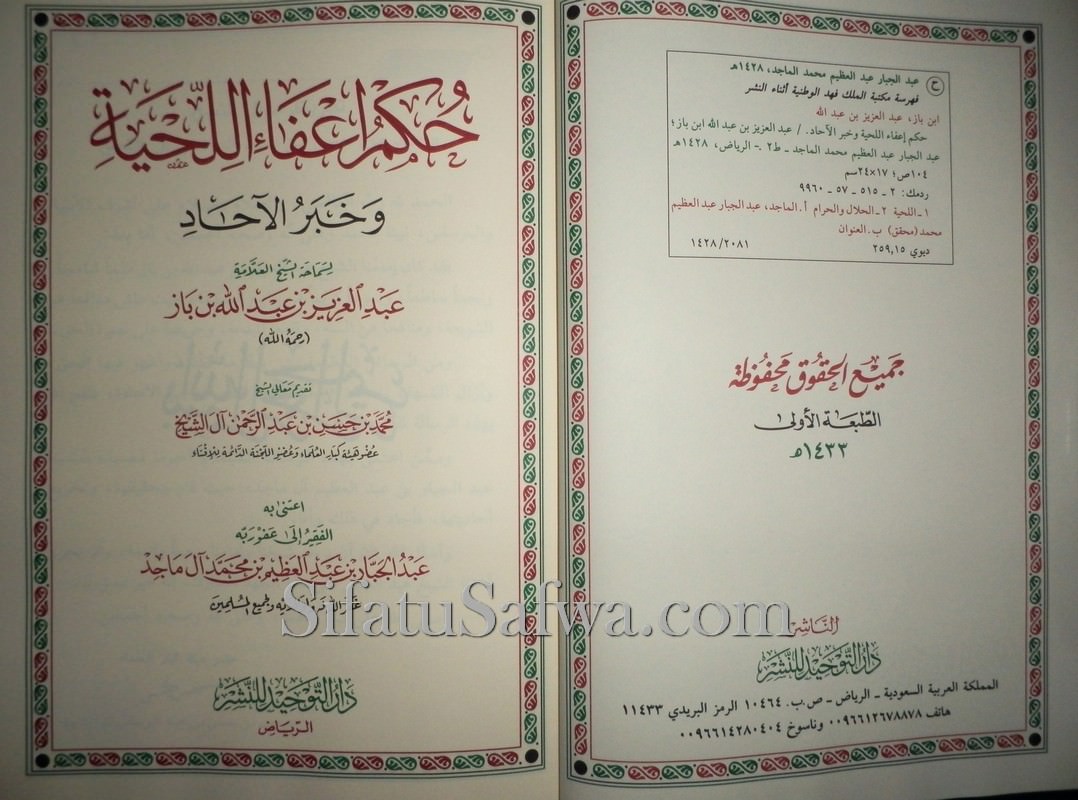 عبد الجبار عبد العظيم محمد الماجد، ١٤٢٨هـ
ح
فهرسة مكتبة الملك فهد الوطنية أثناء النشر
ابن باز، عبد العزيز بن عبد الله
حكم إعفاء اللحية وخبر الآحاد. / عبد العزيز بن عبد الله ابن باز؛
عبد الجبار عبد العظيم محمد الماجد ـ ط٢ .ـ الرياض، ١٤٢٨هـ
١٠٤ص؛ ١٧×٢٤سم
ردمك: ٢ ـ ٥١٥ ـ ٥٧ ـ ٩٩٦٠
١ ـ اللحية ٢ ـ الحلال والحرام أ. الماجد، عبد الجبار عبد العظيم
محمد (محقق) ب. العنوان
ديوي ٢٥٩,١٥ ١٤٢٨/٢٠٨١
جميع الحقوق محفوظة
الطبعة الأولى
١٤٣٣هـ
الناشر
دار التوحيد للنشر
المملكة العربية السعودية ـ الرياض ـ ص.ب. ١٠٤٦٤ الرمز البريدي ١١٤٣٣
هاتف ٠٠٩٦٦١٢٦٧٨٨٧٨ وناسوخ ٠٠٩٦٦١٤٢٨٠٤٠٤
حُكْمُ إعْفَاءِ اللِّحْيَةِ
وَخَبَرُ الآحَادِ
لسماحة الشيخ العلامة
عبد العزيز بن عبد الله بن باز
(رحمه الله)
تقديم معالي الشيخ
محمد بن حسن بن عبد الرحمن آل الشيخ
عضو هيئة كبار العلماء وعضو اللجنة الدائمة للإفتاء
اعتنى به
الفقير إلى عفو ربه
عبد الجبار بن عبد العظيم بن محمد آل ماجد
غفر الله له ولوالديه ولجميع المسلمين
دار التوحيد للنشر
الرياض
SifatuSafwa.com